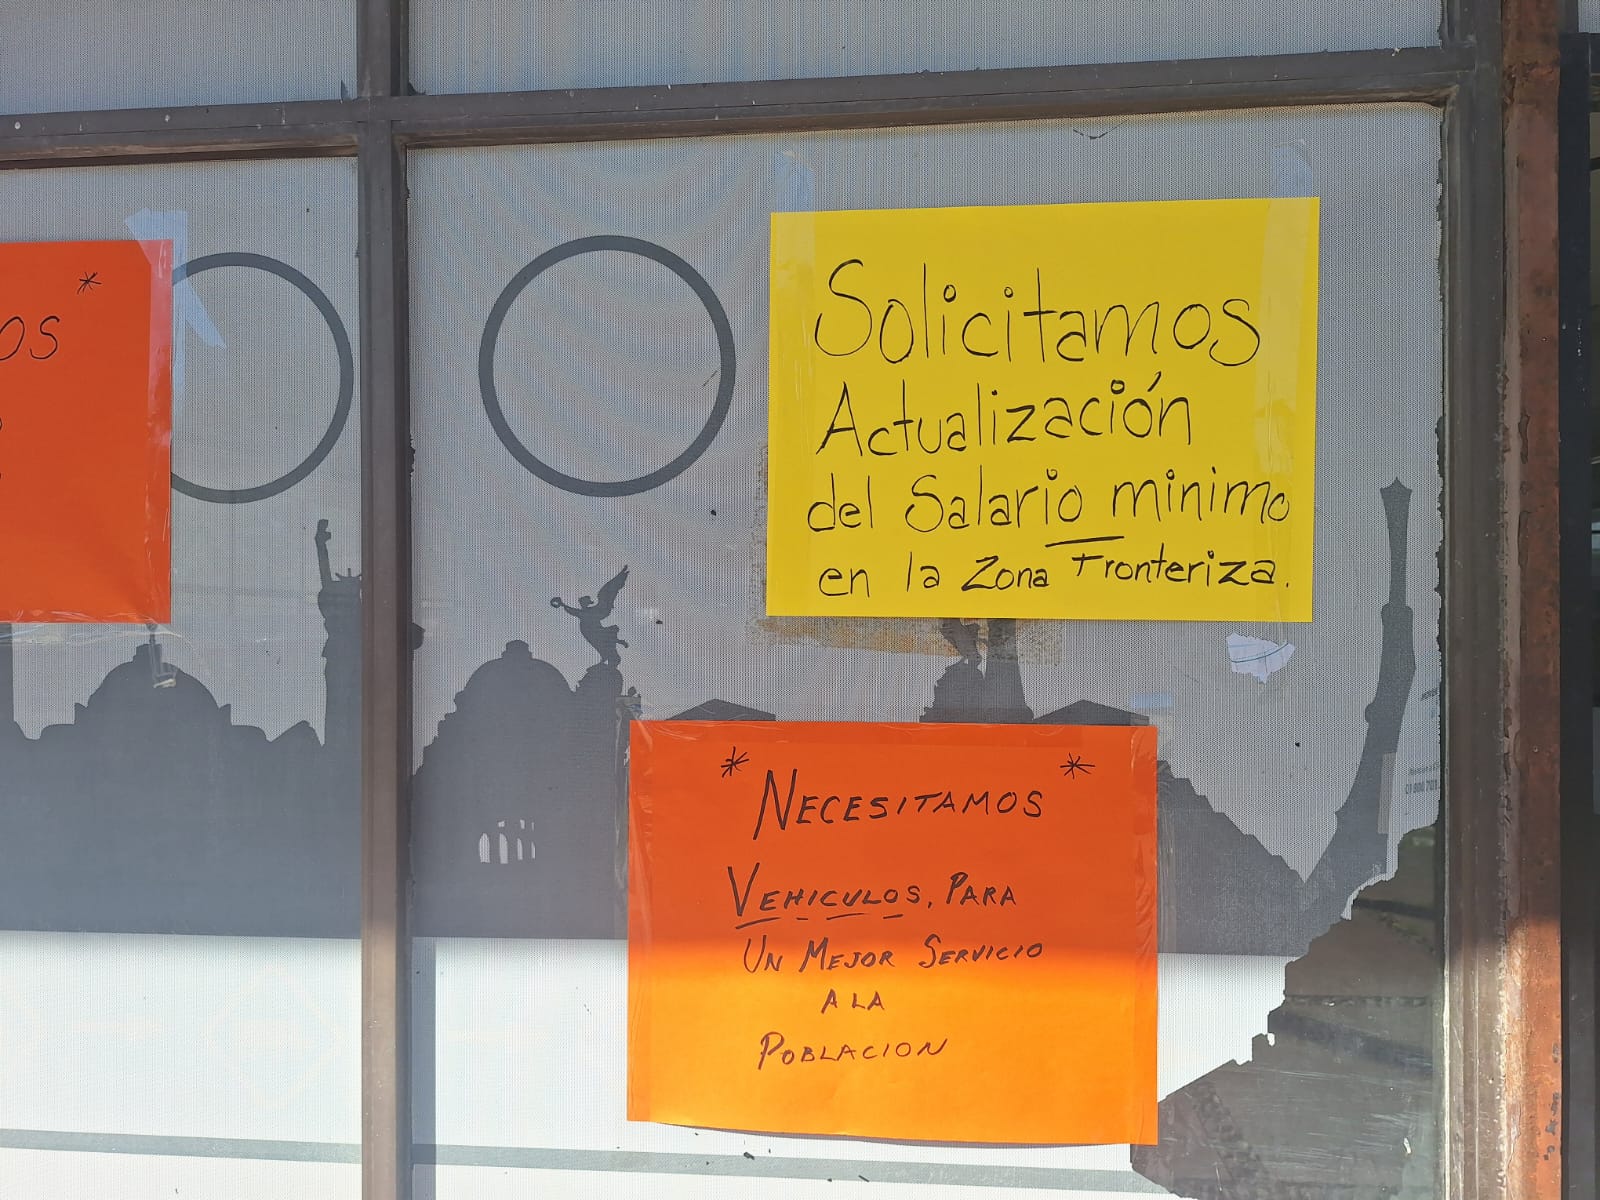 *
OS
Solicitamos
Actualización
del Salario minimo
en la Zona Fronteriza.
* *
NECESITAMOS
VEHICULOS, PARA
UN MEJOR SERVICIO
A LA
POBLACION